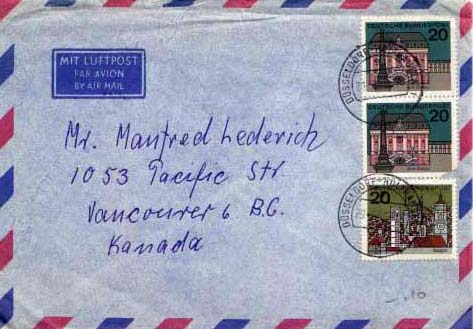 MIT LUFTPOST
PAR AVION
BY AIR MAIL
DEUTSCHE BUNDESPOST
20
DÜSSELDORF
DEUTSCHE BUNDESPOST
20
DÜSSELDORF
20
Mr. Manfred Lederich
1053 Pacific Str.
Vancouver 6 B.C.
Kanada